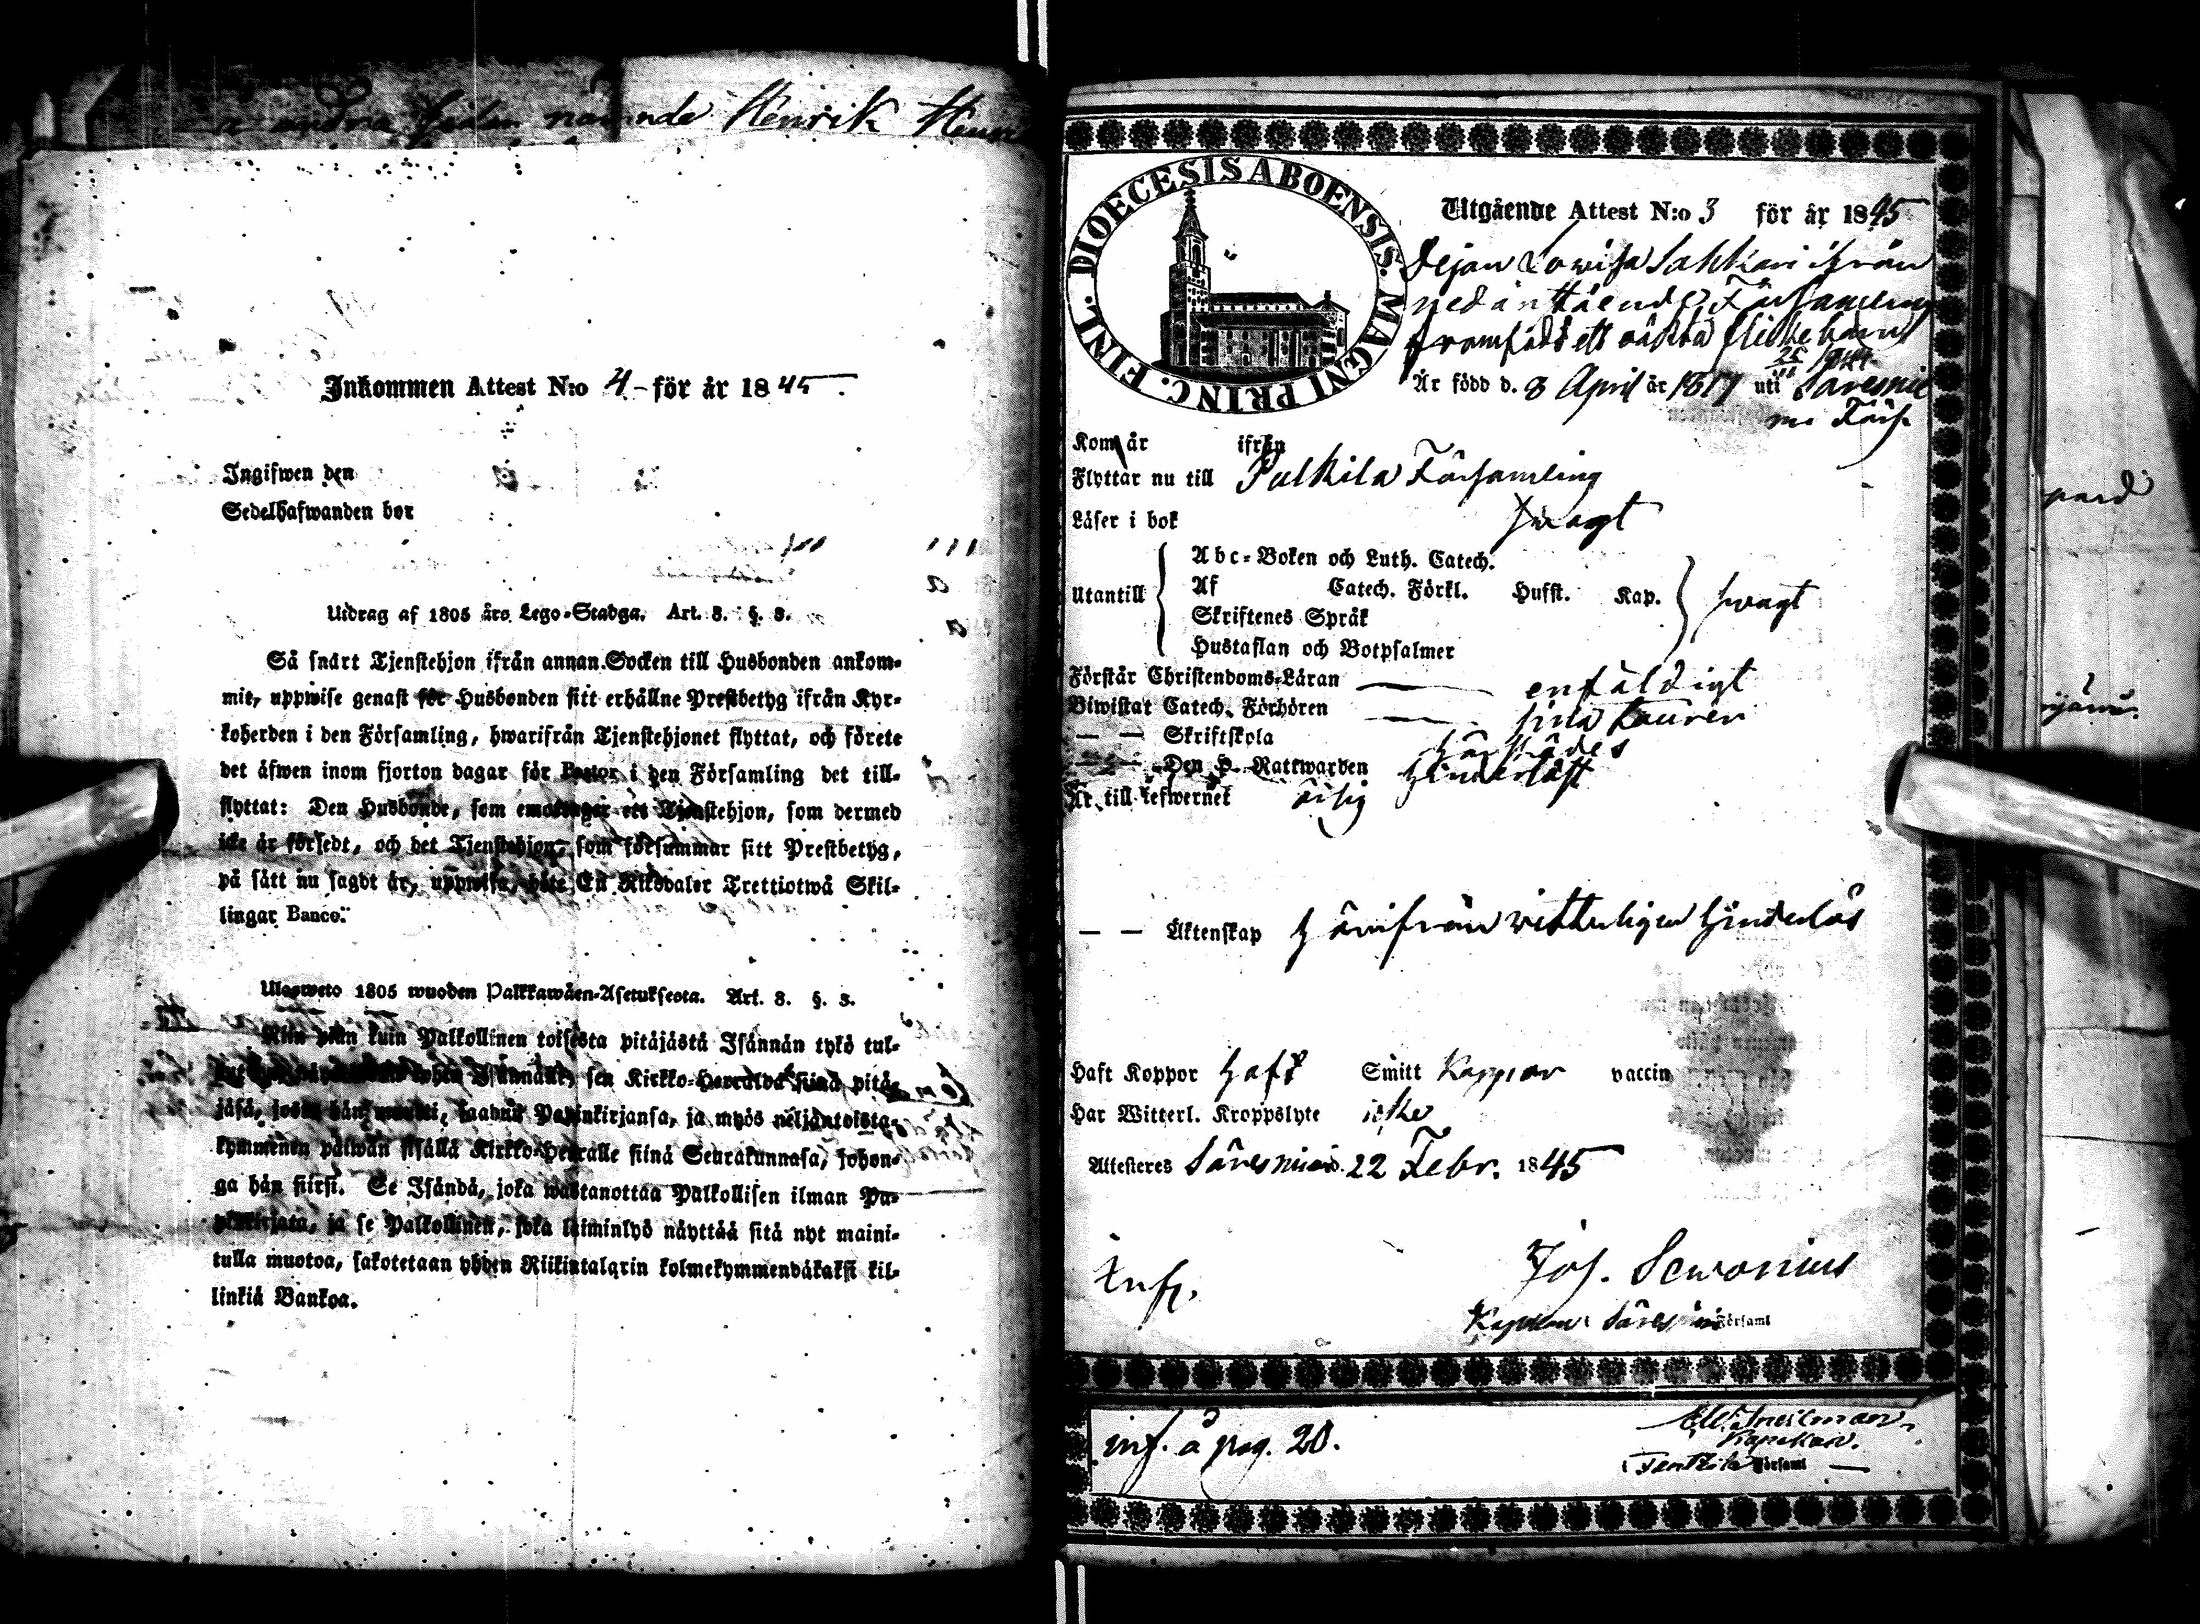 andra sidan nämnde Henrik
Inkommen Attest N:o 4 - för år 1845.
Ingifwen den
Sedelhafwanden bor
Utdrag af 1805 års Lego-Stadga. Art. 3. §. 3.
Så snärt Tjenstehjon ifrån annan Socken till Husbonden ankom-
mit, uppwise genast för Husbonden sitt erhållne Prestbetyg ifrån Kyr-
koherden i den Församling, hwarifrån Tjenstehjonet flyttat, och förete
det äfwen inom fjorton dagar för Pastor i den Församling det till-
flyttat: Den Husbonde, som emottager ett Tjenstehjon, som dermed
icke är försedt, och det Tjenstehjon, som försummar sitt Prestbetyg,
på sätt nu sagdt är, uppwisa, böte En Riksdaler Trettiotwå Skil-
lingar Banco."
Ulosweto 1805 wuoden Palkkawäen-Asetuksesta. Art. 3. §. 3.
Niin pian kuin Palkollinen toisesta pitäjästä Isännän tykö tul-
sen Kirkko-Herralda siinä pitä-
jäsä, josta hän muutti, saadun Papinkirjansa, ja myös neljäntoista-
kymmenen päiwän sisällä Kirkko-Herralle siinä Seurakunnasa, johon-
ga hän siirsi. Se Isändä, joka wastanottaa Palkollisen ilman Pa-
pinkirjata, ja se Palkollinen, joka laiminlyö näyttää sitä nyt maini-
tulla muotoa, sakotetaan yhden Riikintalarin kolmekymmendäkaksi kil-
linkiä Bankoa.
DIOECESIS ABOENSIS. MAGNI PRINC. FINL.
Utgående Attest N:o 3 för år 1845
Pejan Lowisa Sakkari ifrån
nedanstående Församling
framfödt ett oäkta flickebarn
25/11 1844
Är född d. 8 April år 1817 uti Säresnie
mi Förs.
Kom år ifrån
Flyttar nu till Pulkila Församling
Läser i bok swagt
Abc-Boken och Luth. Catech.
Utantill Af Catech. Förkl. Hufst. Kap. swagt
Skriftenes Språk
Hustaflan och Botpsalmer
Förstår Christendoms-Läran — enfäldigt
Biwistat Catech. Förhören — sina
— — Skriftskola
— — Den H. Nattwarden hinderlöst
Är till lefwernet
— — Äktenskap härifrån witterligen hinderlös
Haft Koppor haft Smitt Koppor vaccin
Har Witterl. Kroppslyte icke
Attesteres Säresniemi d. 22 Febr. 1845
Inf.
Joh. Sewonius
Kapellan i Säresniemi Församl
inf. å pag. 20.
Snellman
Kapellan.
Församl —